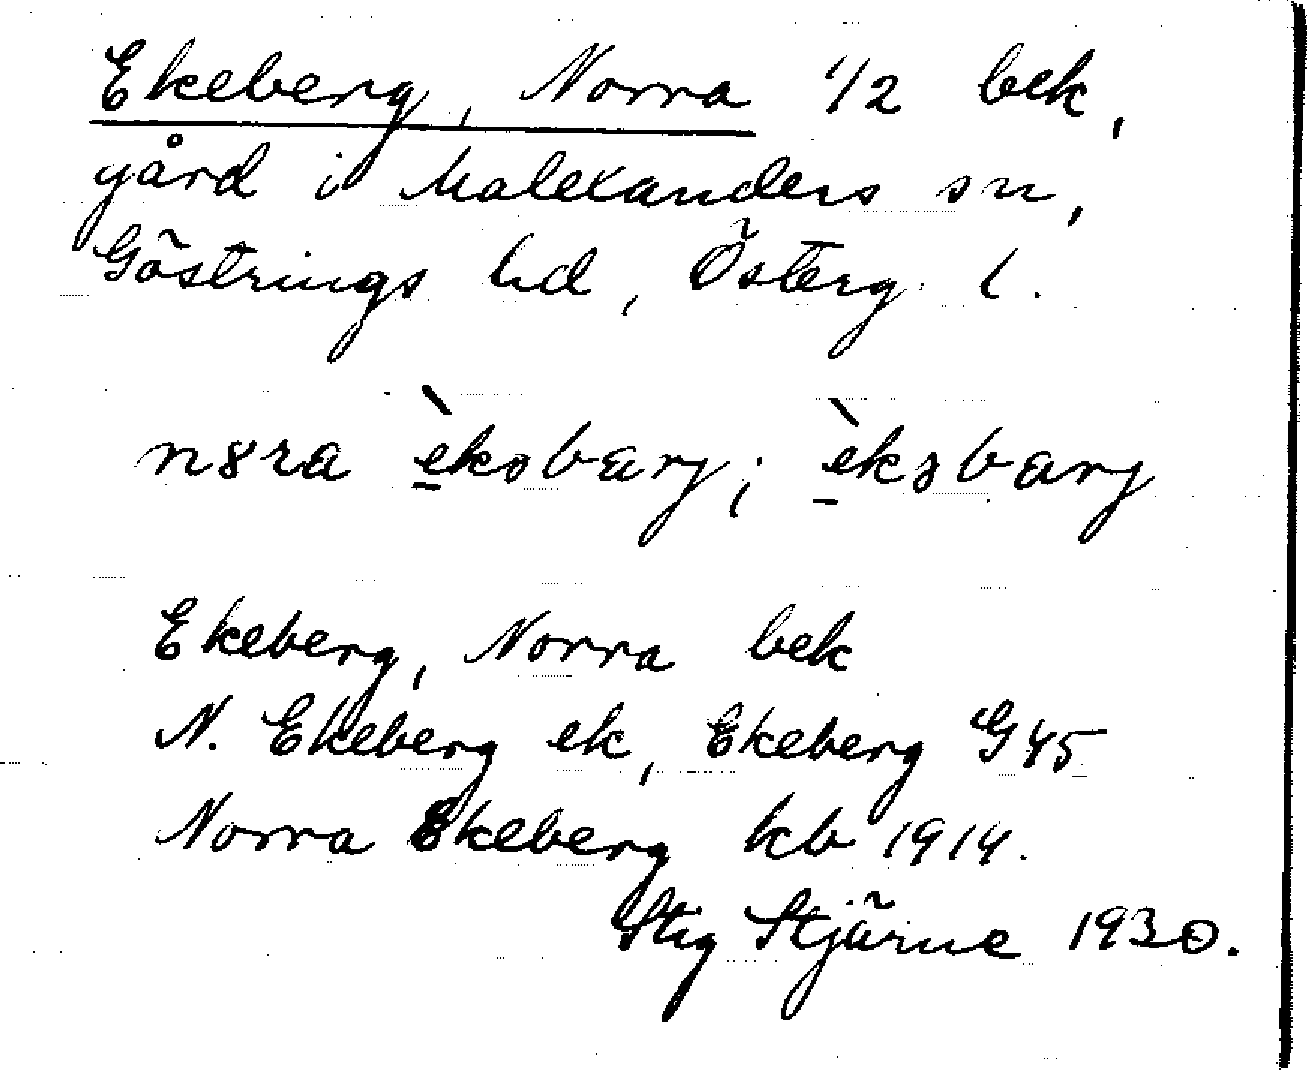 Ekeberg, Norra 1/2 bek,
gård i Malexanders sn,
Göstrings hd, Österg. l.
n8ra èkəbarj; èkəbarj
Ekeberg, Norra bek
N. Ekeberg ek, Ekeberg G45
Norra Ekeberg kb 1914.
Stig Stjärne 1930.